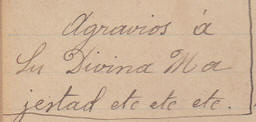 Agravios á
Su Divina Ma
jestad etc etc etc.